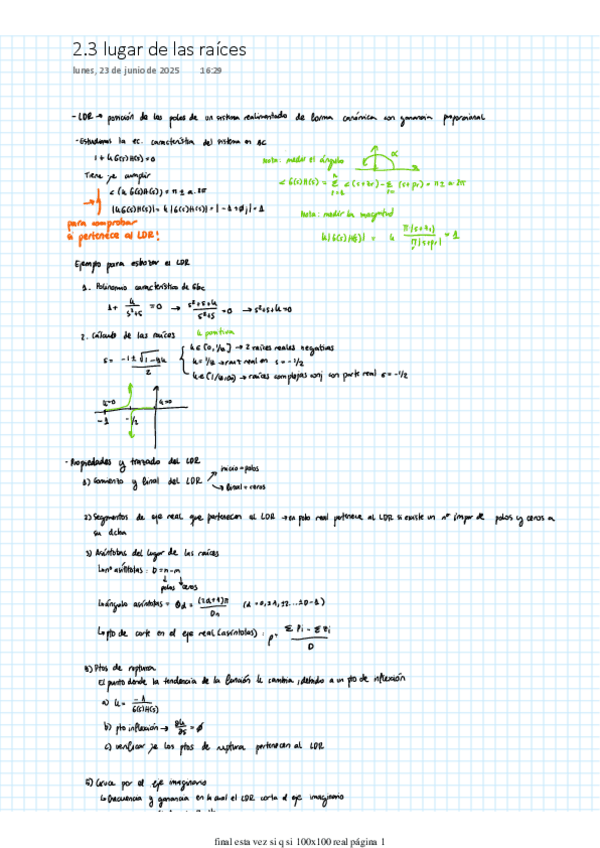 2.3 lugar de las raíces
lunes, 23 de junio de 2025 16:29
- LDR → posición de los polos de un sistema realimentado de forma canónica con ganancia proporcional
- Estudiamos la ec. característica del sistema en BC
1 + k G(s)H(s) = 0
Tiene q se cumplir
∠(k G(s)H(s)) = π ± a·2π
|k G(s)H(s)| = k |G(s)H(s)| = |-1 + 0j| = 1
para comprobar
si pertenece al LDR!
Nota: medir el ángulo
α
Nota: medir la magnitud
Ejemplo para esbozar el LDR
1. Polinomio característico de Gbc
1 + k/(s²+s) = 0 → (s²+s+k)/(s²+s) = 0 → s²+s+k = 0
2. Cálculo de las raíces
k positiva
s = (-1 ± √(1-4k))/2
k ∈ [0, 1/4] → 2 raíces reales negativas
k = 1/4 → raíz real en s = -1/2
k ∈ (1/4, ∞) → raíces complejas conj con parte real s = -1/2
k=0 k=0
-1 -1/2
- Propiedades y trazado del LDR
1) Comienzo y final del LDR
inicio = polos
final = ceros
2) Segmentos de eje real que pertenecen al LDR → un pto real pertenece al LDR si existe un nº impar de polos y ceros a
su dcha
3) Asíntotas del lugar de las raíces
↳ nº asíntotas: D = n - m
polos ceros
↳ ángulo asíntotas =
↳ pto de corte en el eje real (asíntotas): ρ = (Σ Pi - Σ Zi)/D
Ptos de ruptura
El punto donde la tendencia de la función k cambia, debido a un pto de inflexión
a) k = -1/(G(s)H(s))
b) pto inflexión → ∂k/∂s = 0
c) verificar q los ptos de ruptura pertenecen al LDR
Cruce por el eje imaginario
↳ frecuencia y ganancia en la cual el LDR corta el eje imaginario
final esta vez si q si 100x100 real página 1